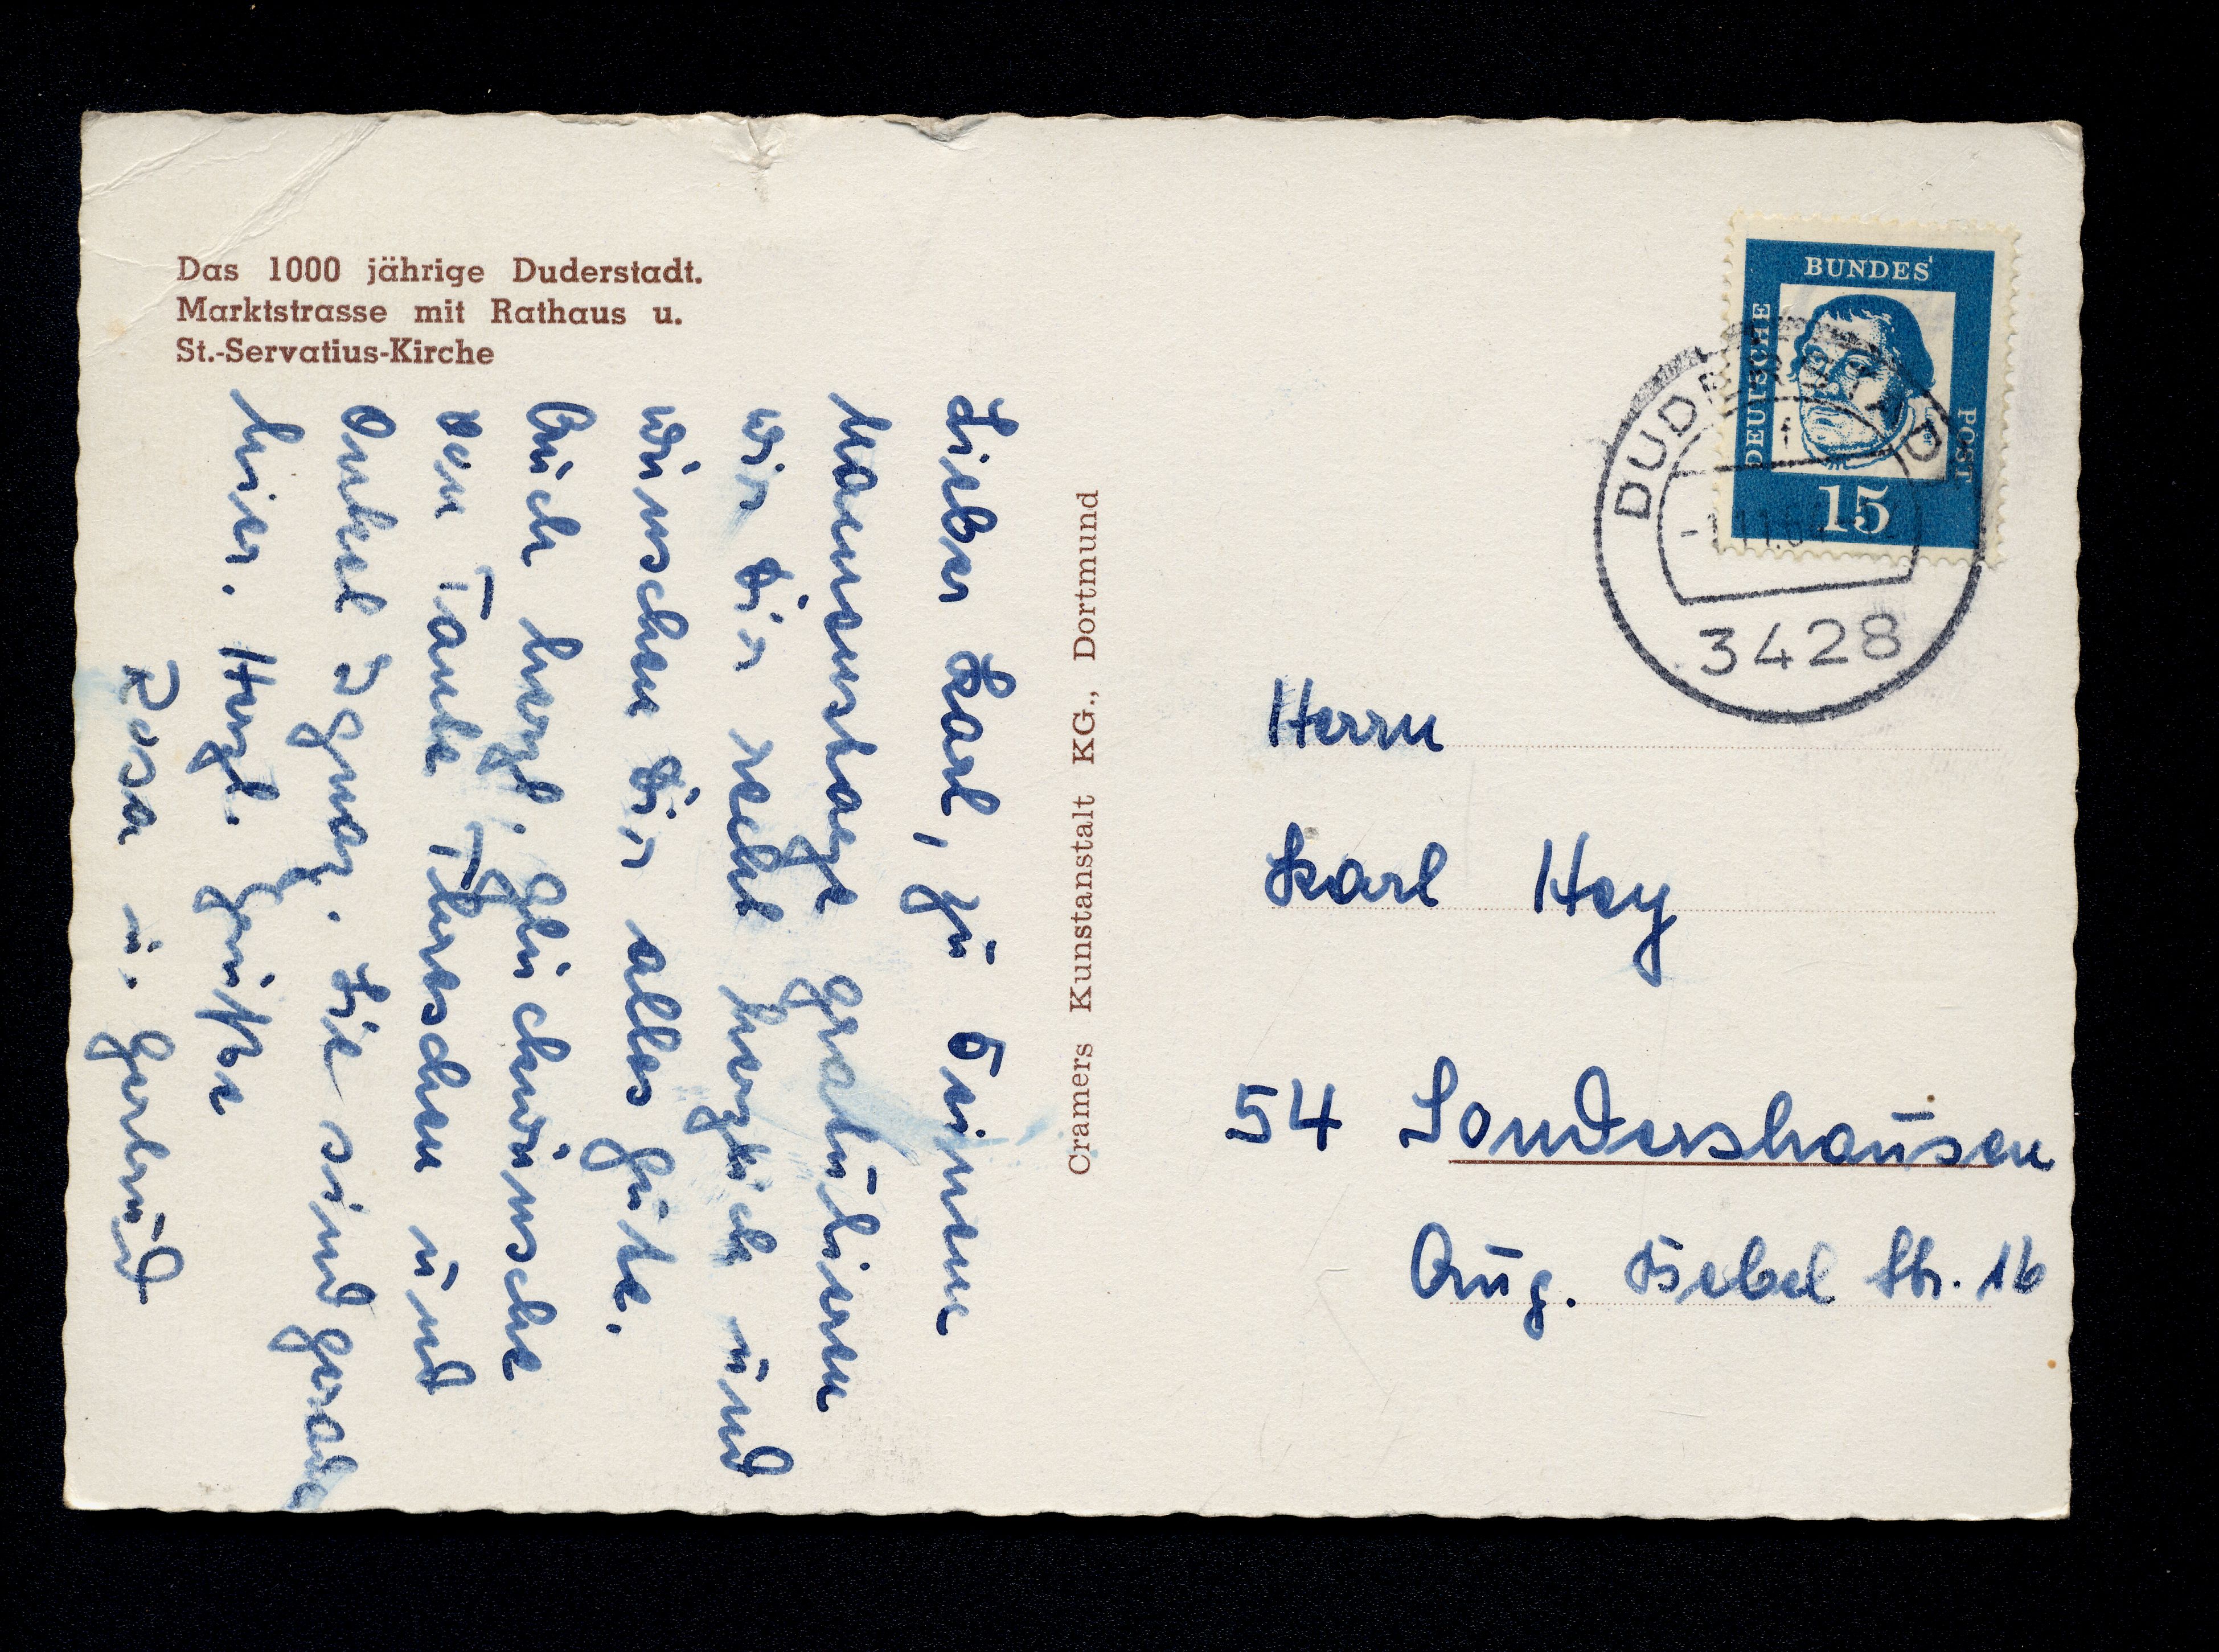 Das 1000 jährige Duderstadt.
Marktstrasse mit Rathaus u.
St.-Servatius-Kirche
Lieber Karl, zu Deinem
Namenstage gratulieren
wir Dir recht herzlich und
wünschen Dir alles Gute.
Auch herzl. Glückwünsche
von Tante Thereschen und
Onkel Ignaz. Die sind gerade
hier. Herzl. Grüße
Rosa u. Gertrud
Cramers Kunstanstalt KG., Dortmund
DEUTSCHE BUNDES POST
15
DUDERSTADT
3428
Herrn
Karl Hey
54 Sondershausen
Aug. Bebel Str. 16